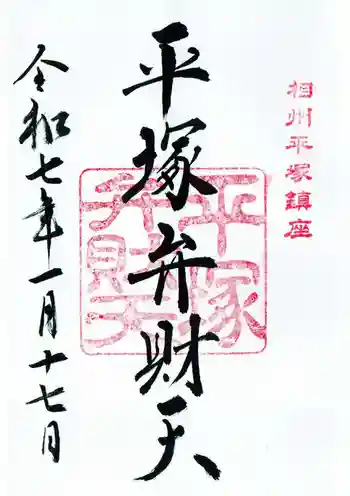 相州平塚鎮座
平塚弁財天
平塚
弁財天
令和七年一月十七日